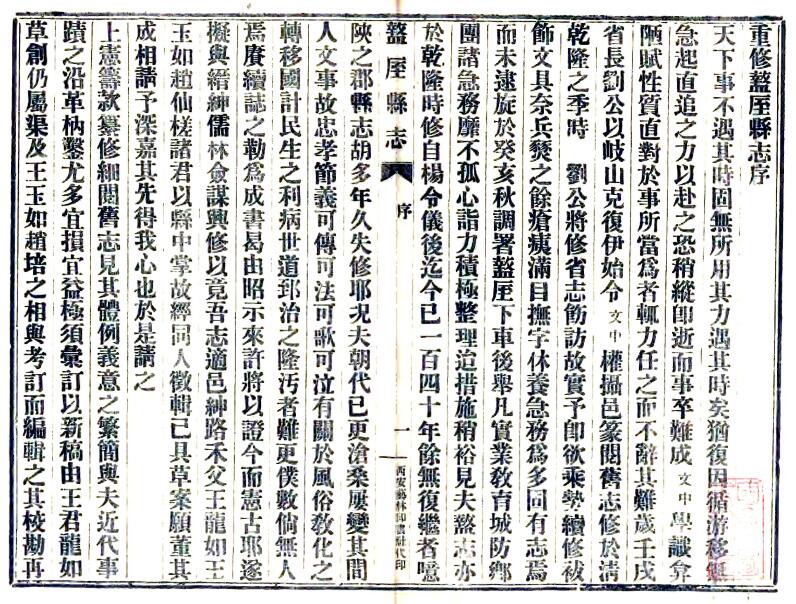 重修盩厔縣志序
天下事不遇其時固無所用其力遇其時矣猶復因循游移無
急起直追之力以赴之恐稍縱即逝而事卒難成文中學識弇
陋賦性質直對於事所當為者輒力任之而不辭其難歲壬戌
省長劉公以岐山克復伊始令文中權攝邑篆閱舊志修於清
乾隆之季時 劉公將修省志飭訪故實予即欲乘勢續修祓
飾文具奈兵燹之餘瘡痍滿目撫字休養急務為多固有志焉
而未逮旋於癸亥秋調署盩厔下車後舉凡實業教育城防鄉
團諸急務靡不孤心詣力積極整理迨措施稍裕見夫盩志亦
於乾隆時修自楊令儀後迄今已一百四十年餘無復繼者噫
盩厔縣志
序
一
西安藝林印書社代印
陝之郡縣志胡多年久失修耶況夫朝代已更滄桑屢變其間
人文事故忠孝節義可傳可法可歌可泣有關於風俗教化之
轉移國計民生之利病世道郅治之隆汚者難更僕數倘無人
焉賡續誌之勒為成書曷由昭示來許將以證今而憲古耶遂
擬與縉紳儒林僉謀興修以竟吾志適邑紳路禾父王龍如王
玉如趙仙槎諸君以縣中掌故經同人徵輯已具草案願董其
成相請予深嘉其先得我心也於是請之
上憲籌款纂修細閱舊志見其體例義意之繁簡與夫近代事
蹟之沿革枘鑿尤多宜損宜益極須彙訂以新稿由王君龍如
草創仍屬渠及王玉如趙培之相與考訂而編輯之其校勘再